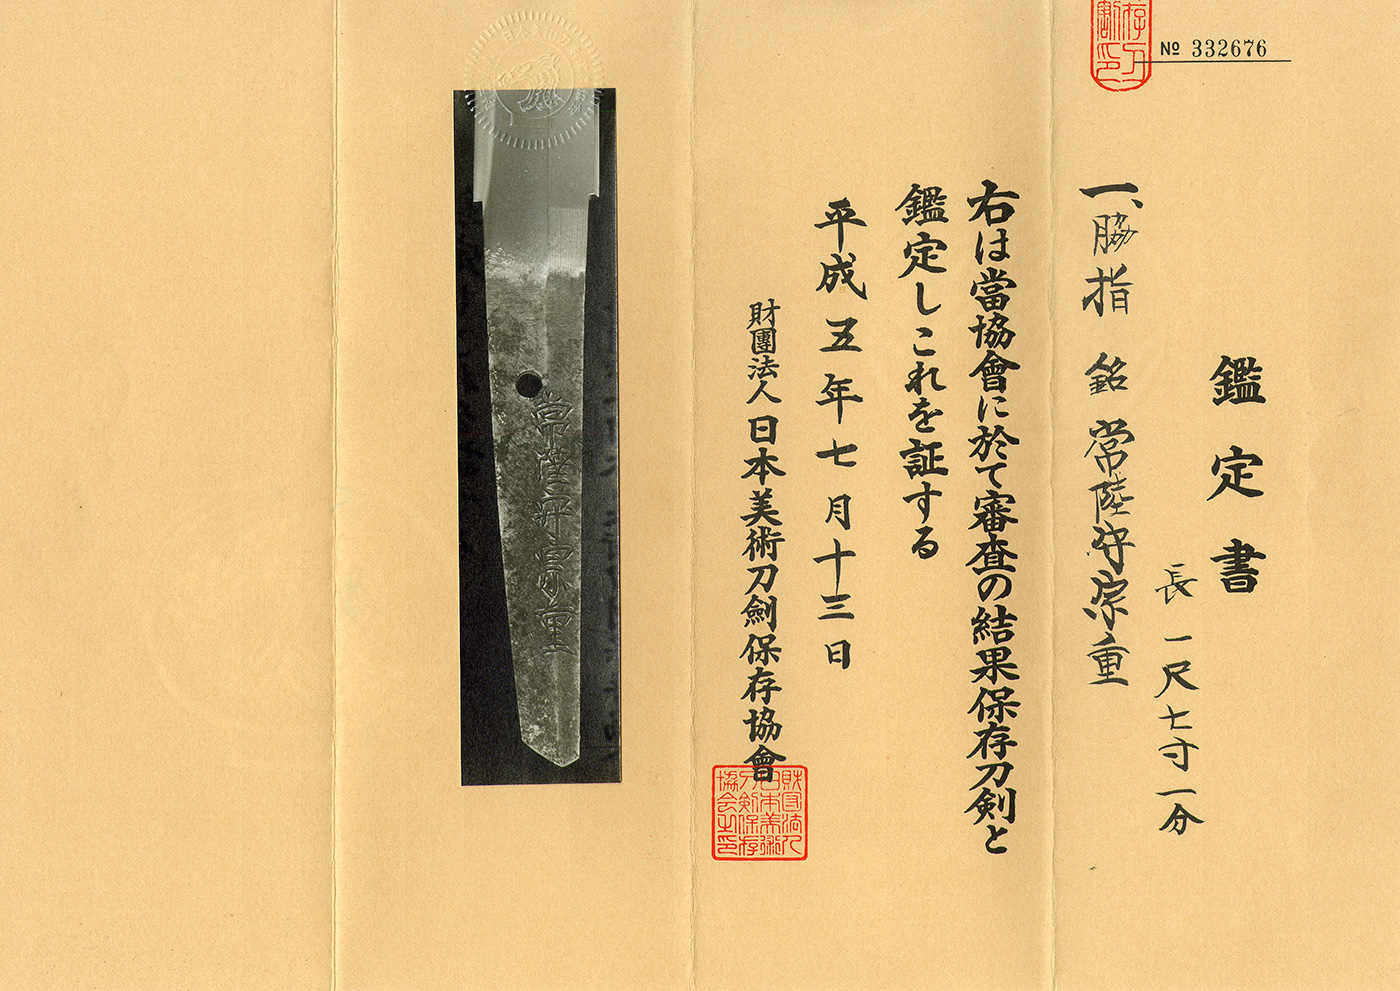 № 332676
鑑定書
長一尺七寸一分
一、脇指 銘 常陸守宗重
右は當協會に於て審査の結果保存刀剣と
鑑定しこれを証する
平成五年七月十三日
財團法人日本美術刀劍保存協會
財団法人
日本美術
刀剣保存
協会之印
常陸守宗重